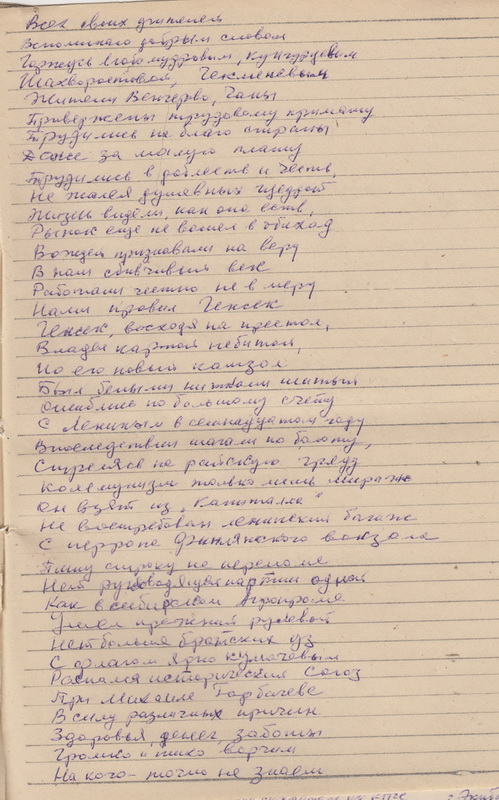 Всех своих учителей
Вспоминаю добрым словом
Горжусь Кунгурцевым
Шахворостовой, Чексменевым
Жители Венгерово, Чаны
Привержены трудовому примату
Трудились на благо страны
Даже за малую плату
Трудились в доблесть и честь,
Не жалея душевных щедрот
Жизнь видели, как она есть,
Рынок еще не вошел в обиход
Вождей признавали на веру
В наш сбивчивый век
Работали честно не в меру
Нами правил Генсек
Генсек, восходя на престол,
Владел картой небитой,
Но его новый камзол
Был белыми нитками шитый
Ошиблись по большому счету
С Лениным в семнадцатом году
Впоследствии шагали по болоту,
Стремясь на райскую гряду
Коммунизм только лишь мираж
Он взят из „Капитала"
Не востребован ленинский багаж
С перрона Финлянского вокзала
Пишу строку на переломе
Нет руководящей партии одной
Как в сибирском Агропроме
Умел прежний рулевой
Нет больше братских уз
С флагом ярко кумачовым
Распался исторический Союз
При Михаиле Горбачеве
В силу различных причин
Здоровья, денег, заботы
Громко и тихо ворчим
На кого – точно не знаем